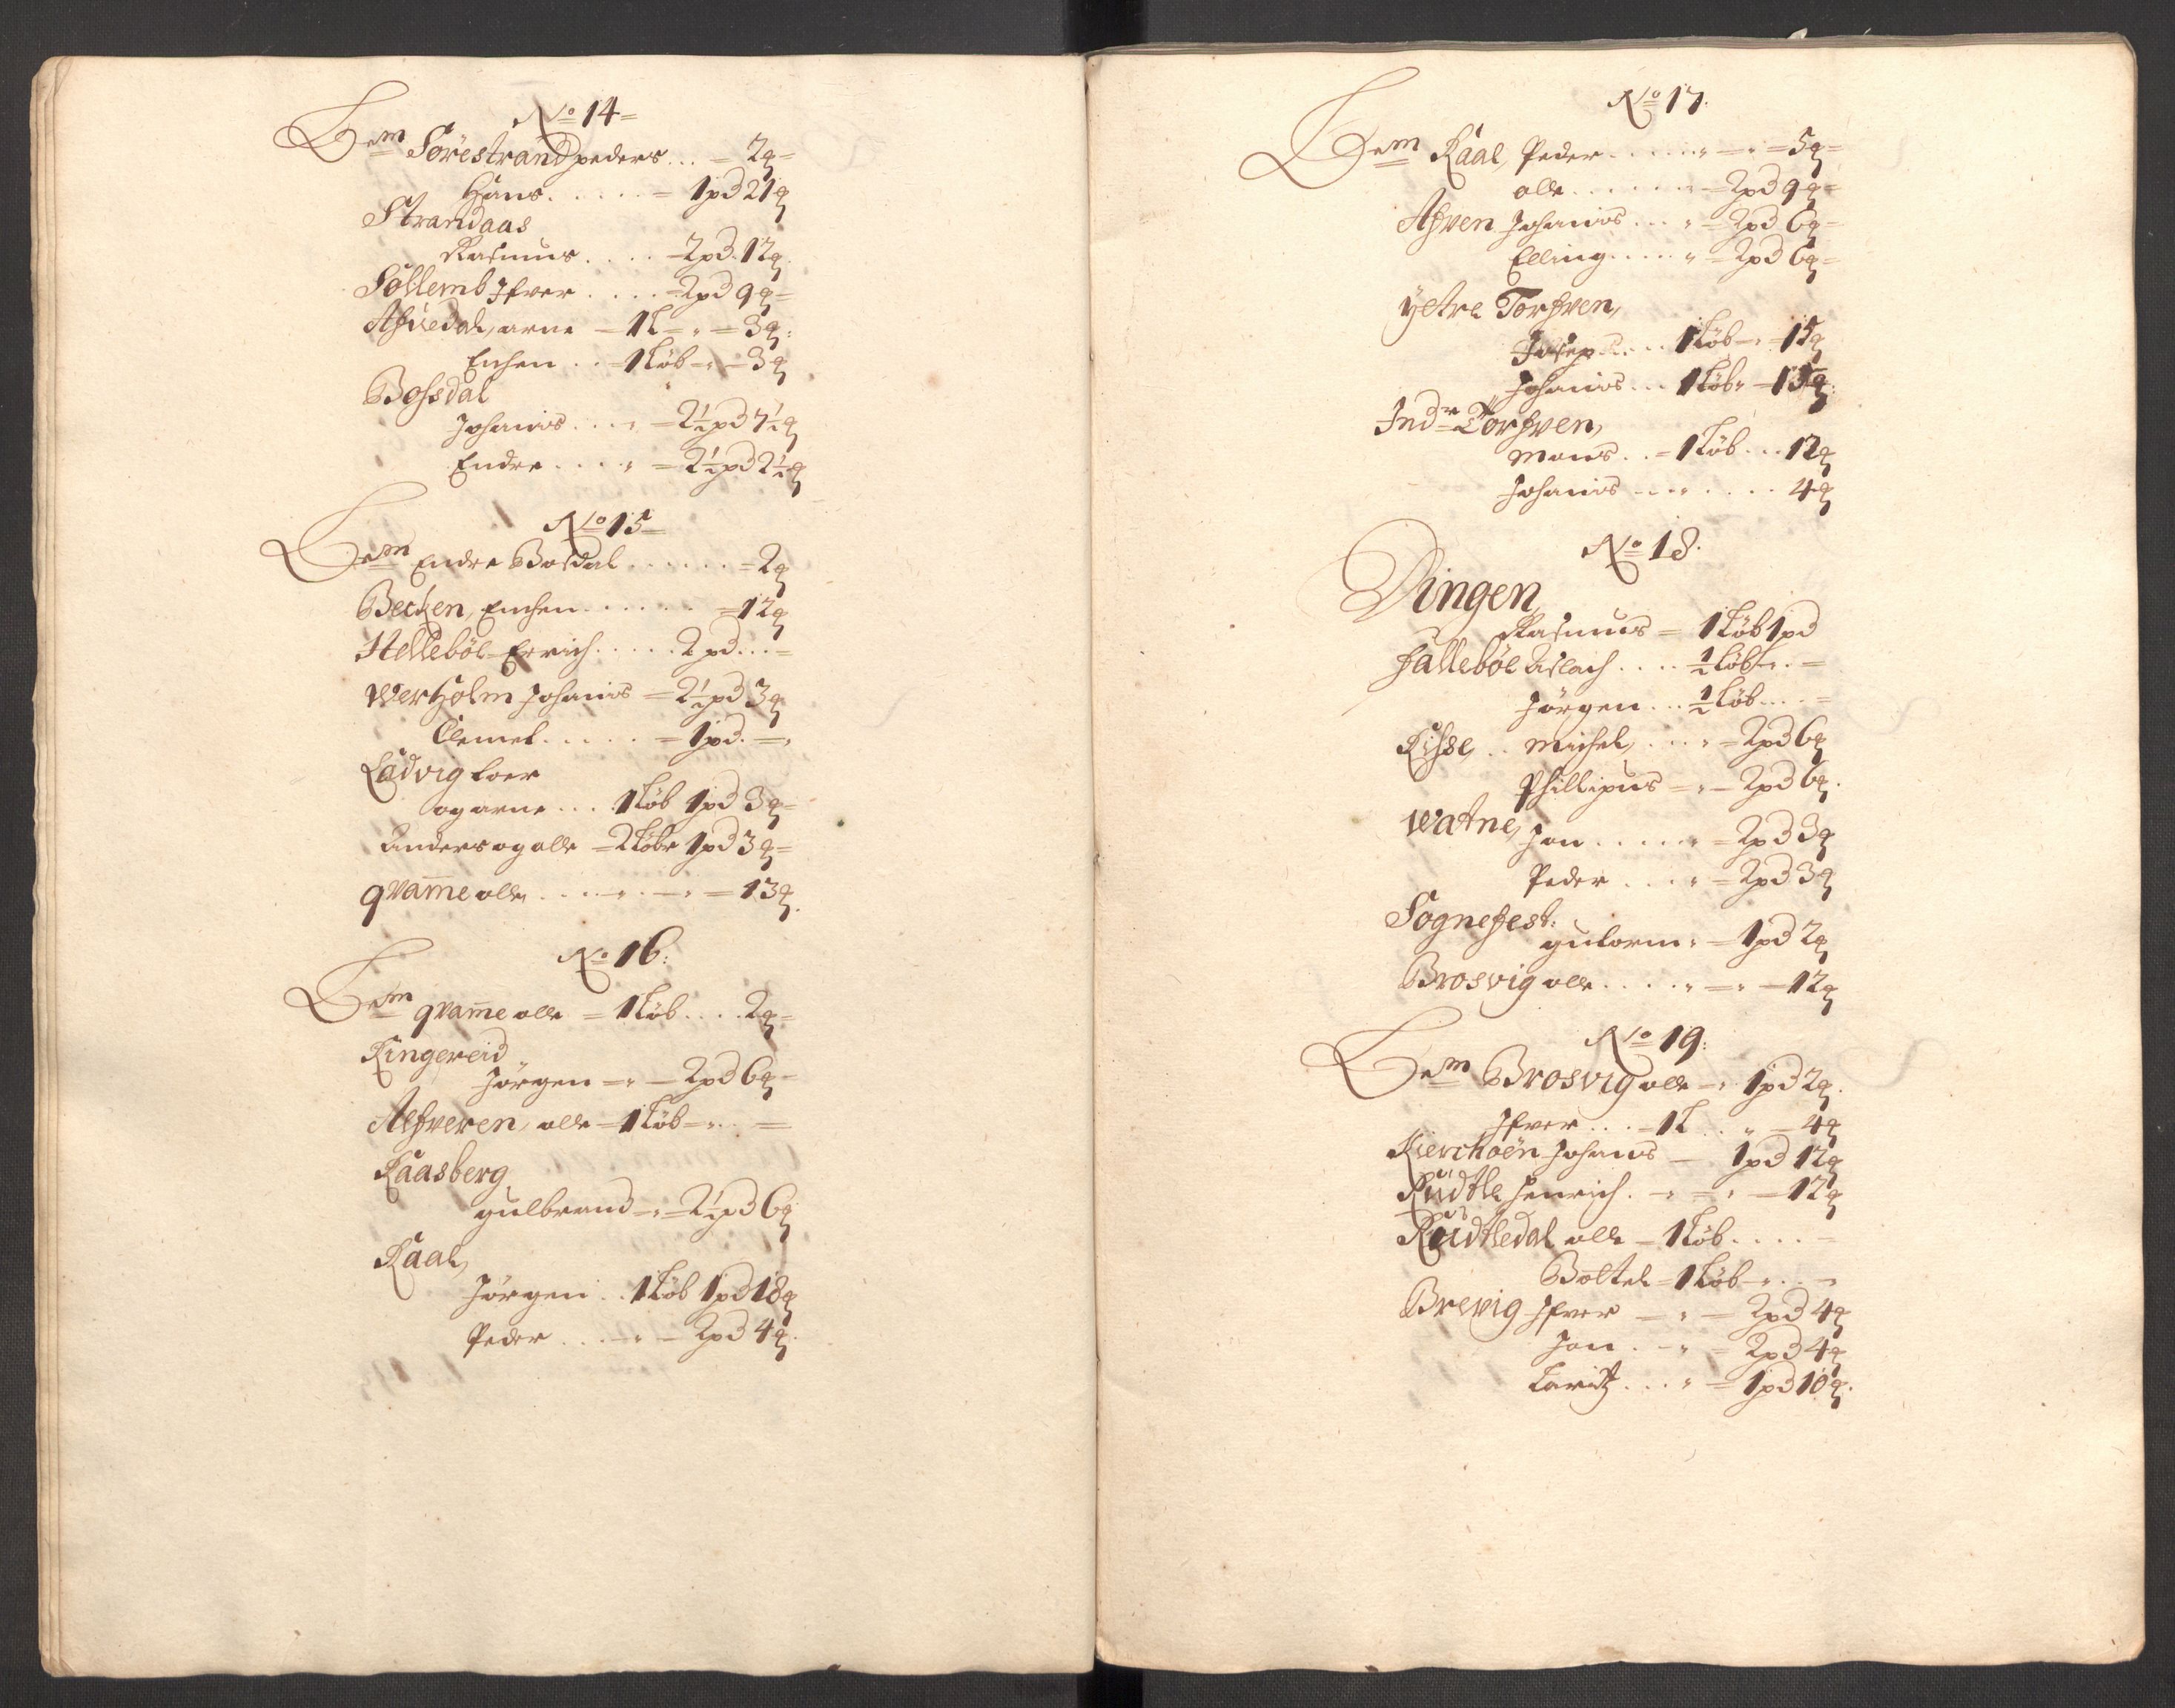 No 14=
Dem Sörestrand peders ... = 2 q=
Hans ..... = 1 pd 21 q
Strandaas
Rasmus .... = 2 pd 12 q
Söllemb Ifver .... = 2 pd 9 q=
arne = 1 L = " = 3 q:
... = 1 Löb - " - 3 q
Bossdal
Johanis ... " = 2½ pd 7½ q
Endre .... " = 2½ pd 2½ q
No 15=
Dem Endre Bosdal ...... = 2 q
Becken, ...... = 12 q
Helleböe Erich ..... 2 pd ... =
Werholm Johanis = 2½ pd 3 q
Clemet ..... = 1 pd. =,
Ladvig
og arne ... 1 Löb 1 pd 3 q=
Anders og olle = 2 Löbe 1 pd 3 q=
qvam̄e olle ... " - " = 13 q.
No 16:
Dem qvam̄e olle = 1 Löb .... 2 q=
Ringereid
Jörgen = " = 2 pd 6 q=
Alfveren, olle = 1 Löb = " .. =
Raasberg
gulbrand = " = 2½ pd 6 q
Kaal,
Jörgen .. 1 Löb 1 pd 18 q
Peder ... - " - 2 pd 4 q.
No 17.
Dem Kaal, Peder ..... " = " = 5 q=
olle ..... " = 2 pd 9 q=
Afven Johanis ... " = 2 pd 6 q=
Elling .... " = 2 pd 6 q=
ÿetre Torfven,
Josep .... 1 Löb - " 15 q
Johanis ... 1 Löb " = 15 q:
Indr Torfven,
Mons .. = 1 Löb ... 12 q
Johanis - - " .... 4 q
No 18.
Dingen,
Rasmus = 1 Löb 1 pd
Halleböe Aslach .... ½ Löb " . =
Jörgen ... ½ Löb .... =
Risse, .. Michel, ... " = 2 pd 6 q
Phillipus = " = 2 pd 6 q.
Watne, Jon ..... " = 2 pd 3 q
Peder .... " = 2 pd 3 q
Sognefest:
gulorm " = 1 pd 2 q
Brosvig olle .... " = " = 12 q
No 19:
Dem Brosvig olle = " 1 pd 2 q.
Ifver ... = 1 L .. " = 4 q
Kierchoën Johanis — 1 pd 12 q
Rüdtle Henrich . - " = " = 12 q
Rüdtledal olle = 1 Löb .... =
Boltel = 1 Löb = " .. =
Brevig Ifver — " — 2 pd 4 q
Jon . - " = 2 pd 4 q
Laritz ... " = 1 pd 10 q.